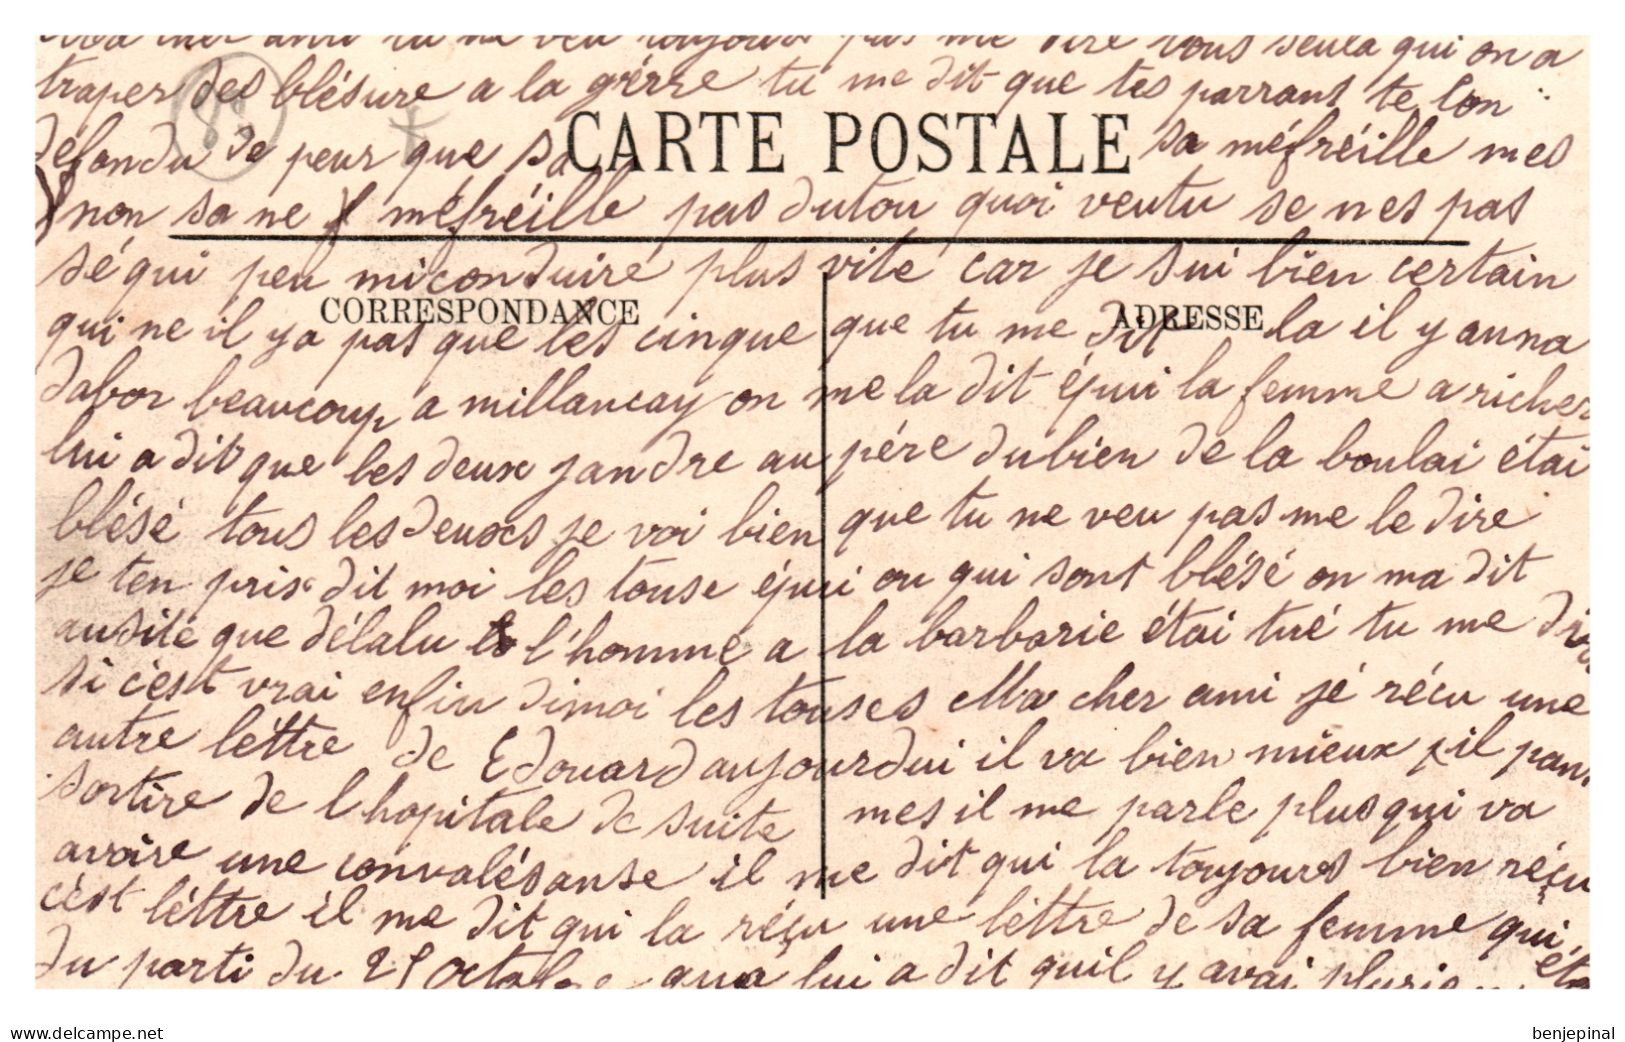 Mon cher ami tu ne veu toujour pas me dire tous seula qui on a
traper des blésure a la gérre tu me dit que tes parrant te lon
défandu de peur que sa sa méfréille mes
CARTE POSTALE
non sa ne méfréille pas dutou quoi ventu se nes pas
sé qui peu miconduire plus vite car je sui bien certain
CORRESPONDANCE ADRESSE
qui ne il ya pas que les cinque que tu me dit la il y anna
dabor beaucoup a millancay on me la dit épui la femme a richer
lui a dit que les deux jandre au pére dubien de la boulai étai
blésé tous les deuxes je voi bien que tu ne veu pas me le dire
je ten pris dit moi les touse épui ou qui sont blésé on ma dit
ausité que délalu l'homme a la barbarie étai tué tu me dira
si cèst vrai enfin dimoi les touses Mon cher ami jé récu une
autre léttre de Edouard aujourdui il va bien mieux il pan
sortire de l hopitale de suite mes il me parle plus qui va
avoire une convalésanse il me dit qui la toujours bien réçu
cést léttre il me dit qui la réçu une léttre de sa femme qui éta
du parti du 25 Octobre lui a dit quil y avai
delcampe.net
benjepinal